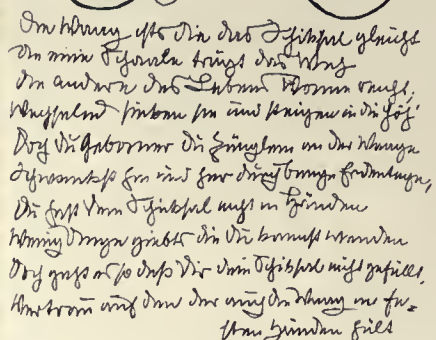 Die Waag ists die das Schiksal gleicht
die eine Schaale trägt das Weh
die andere des Lebens Wonne reicht,
Wechselnd sinken sie und steigen in die Höh'
Doch du Geborner du Zünglein an der Waage
Schwankst hin und her durch bange Erdentage,
Du hast dein Schiksal nicht in Händen
Wenig Dinge giebts die du kannst wenden
Doch gehts so daß dir dein Schiksal nicht gefällt,
Vertrau auf den der auch die Waag in fe-
sten Händen hält